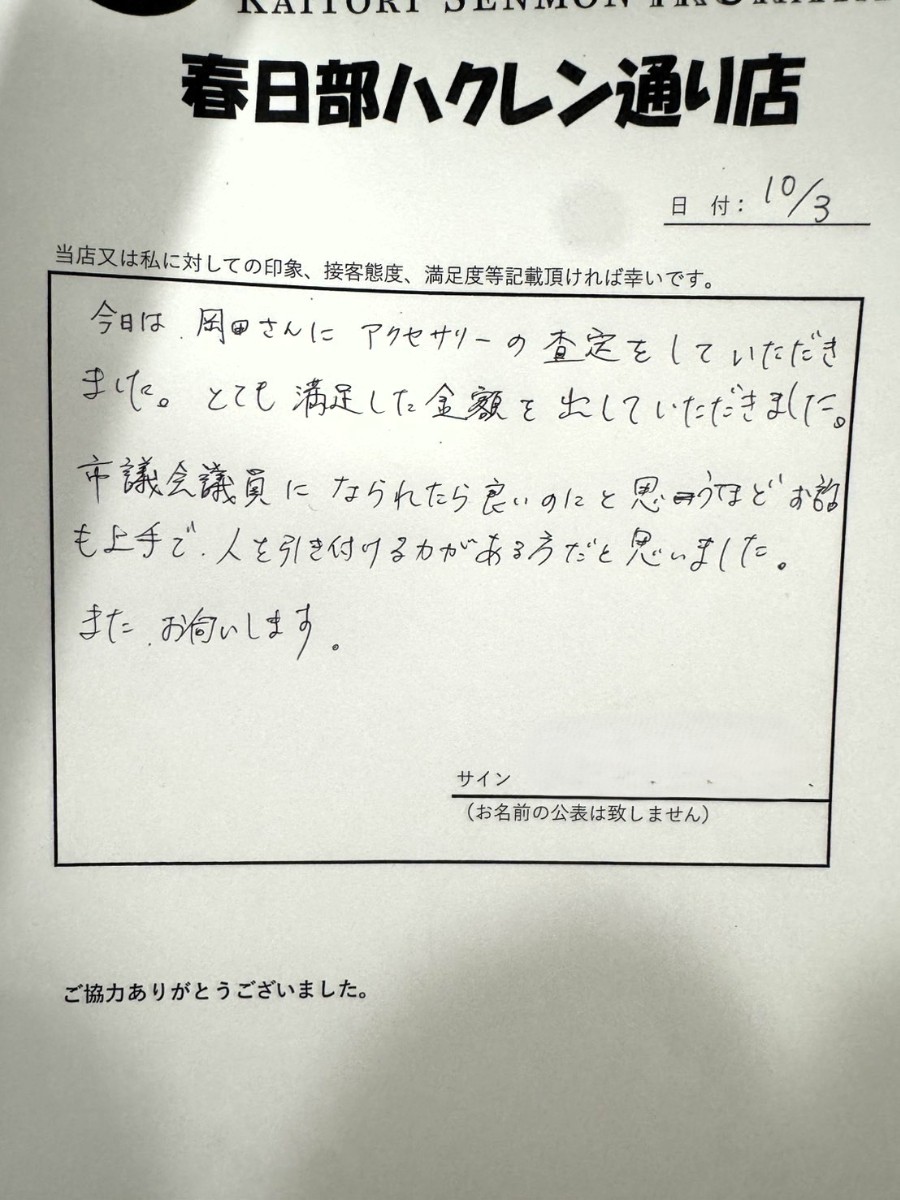 KAITORI SENMON
春日部ハクレン通り店
日 付： 10/3
当店又は私に対しての印象、接客態度、満足度等記載頂ければ幸いです。
今日は、岡田さんに アクセサリーの 査定をして いただき
ました。とても 満足した 金額を 出していただきました。
市議会議員に なられたら良いのにと 思うほど お話
も上手で、人を引き付ける力がある方だと 思いました。
また、お伺いします。
サイン
（お名前の公表は致しません）
ご協力ありがとうございました。